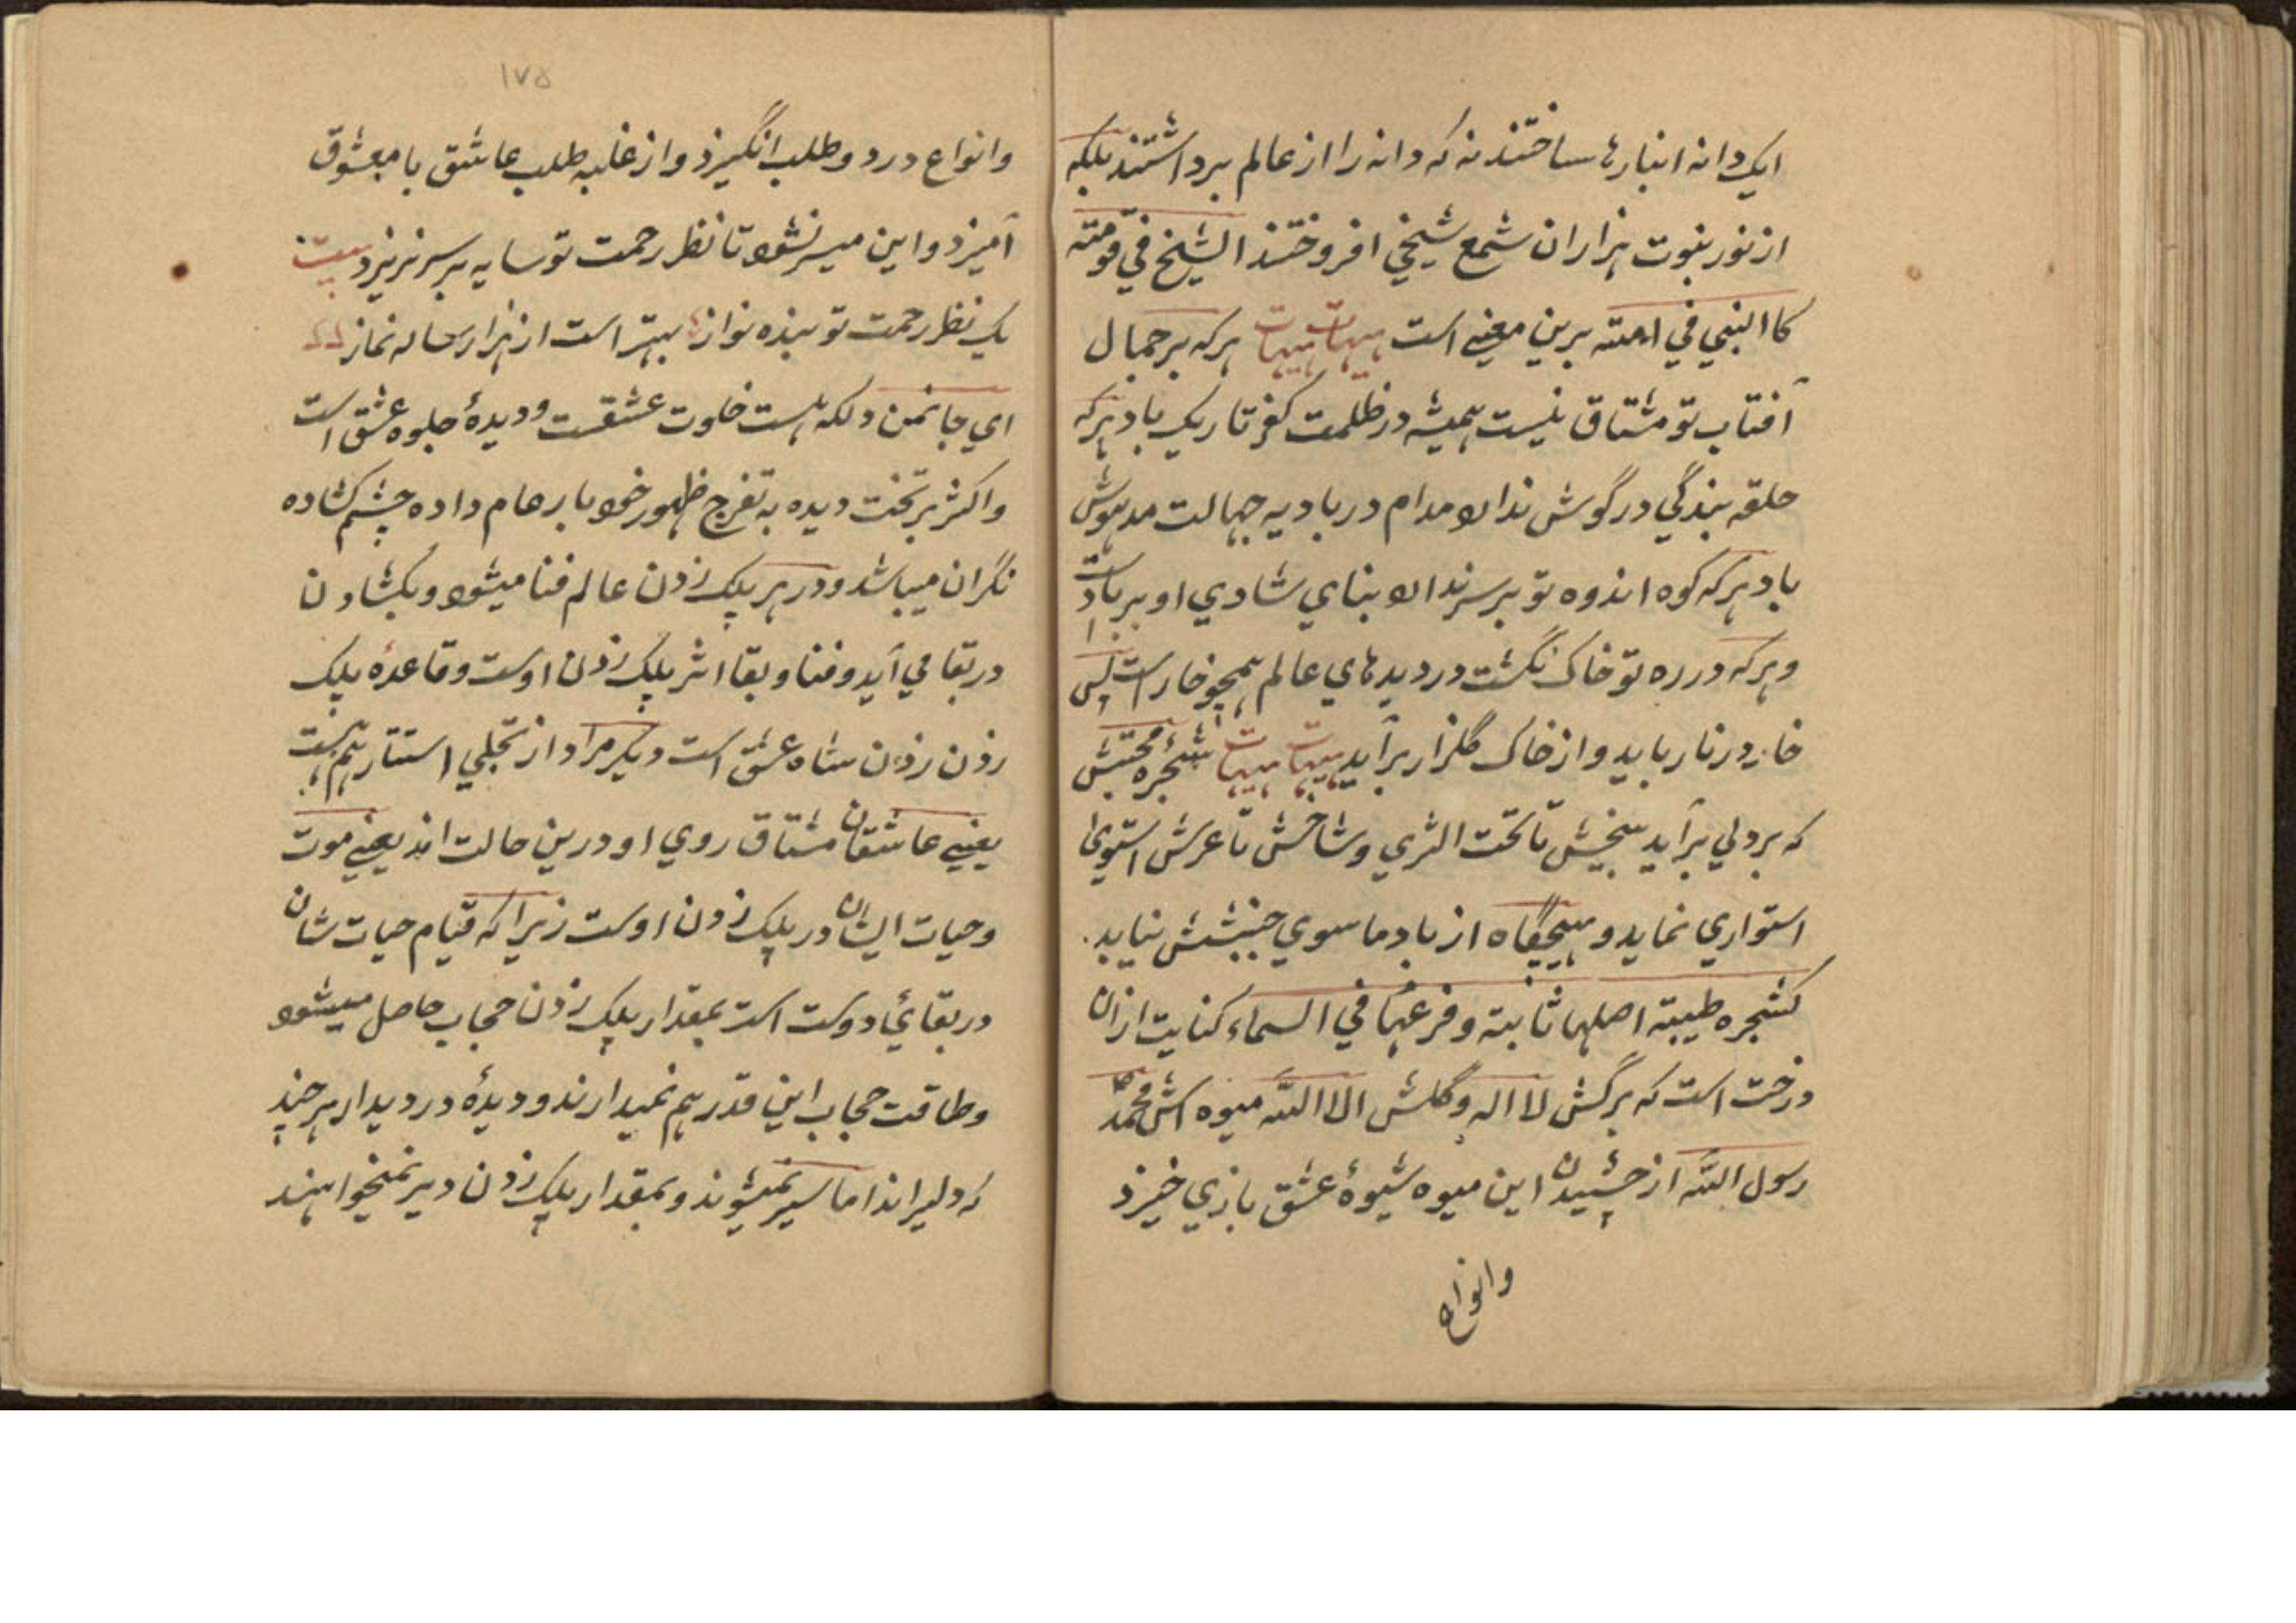 ایک دانه انبارها ساختند نه که دانه را از عالم برداشتند بلکه
از نور نبوت هزاران شمع شیخی افروختند الشیخ في قومته
کا النبي في امته برین معنی است هیهات هیهات هرکه بر جمال
آفتاب تو مشتاق نیست همیشه در ظلمت کفر تاریک باد هرکه
حلقه بندگي در گوش ندارد مدام در بادیه جهالت مدهوش
باد هرکه کوه اندوه تو بر سر ندارد بناي شادي او برباد است
و هرکه در ره تو خاک نگشت در دیدهاي عالم همچو خار است پس
خار در نار باید و از خاک گلزار برآید هیهات هیهات شجره محبتش
که بر دلي برآید بیخش تا تحت الثري و شاخش تا عرش استوی
استواري نماید و هیچگاه از باد ما سوي جنبشش نیاید.
کشجره طیبته اصلها ثابته و فرعها في السماء کنایت ازان
درخت است که برگش لا اله و گلش الا الله میوه اش محمد
رسول الله از چشیدن این میوه شیوۀ عشق بازي خیزد
وانواع
۱۷۵
وانواع درد و طلب انگیزد و از غلبه طلب عاشق با معشوق
آمیزد و این میسر نشود تا نظر رحمت تو سایه بر سر نریزد بیت
یک نظر رحمت تو بنده نواز بهتر است از هزار ساله نماز
اي جانمن دلکه هست خلوت عشقست و دیدۀ جلوه عشق است
و اکثر بر تخت دیده به تفرج ظهور خود بار عام داده چشم کشاده
نگران میباشد و در هر پلک زدن عالم فنا میشود و بکشادن
در بقا مي آید و فنا و بقا اثر پلک زدن اوست و قاعدۀ پلک
زدن زدن شاه عشق است دیگر مراد از تجلي استتار هم است
یعنی عاشقان مشتاق روي او درین حالت اند یعنی موت
و حیات ایشان در پلک زدن اوست زیرا که قیام حیات شان
در بقائي دوست است بمقدار پلک زدن حجاب حاصل میشود
و طاقت حجاب این قدر هم نمیدارند و دیدۀ در دیدار هر چند
که دلیراند اما سیر نمیشوند و بمقدار پلک زدن دیر نمیخواهند